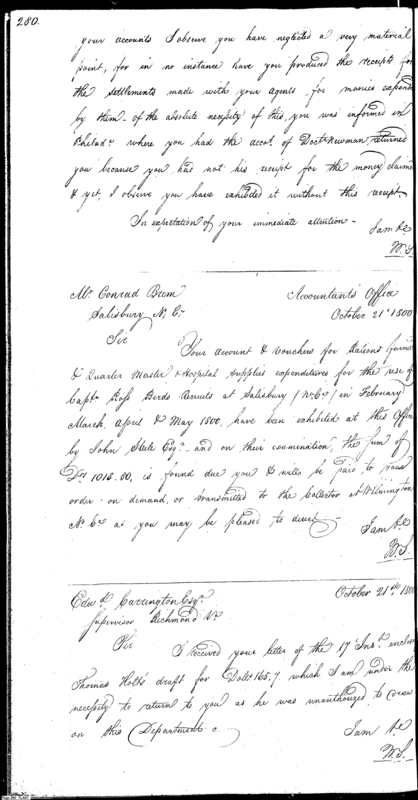 280.
your accounts I observe you have neglected a very material
point, for in no instance have you produced the receipts for
the settlements made with your agents for monies expend
by them. of the absolute necessity of this, you was informed in
Philada. where you had the acct. of Doctr. Newman, returned
you because you had not his receipt for the money claime
& yet, I observe you have exhibited it without this receipt.
In expectation of your immediate attention -
I am &c
W.S
Mr. Conrad Brem
Salisbury N. Ca.
Accountants Office
October 21st 1800
Sir
Your account & vouchers for Rations furnis
& Quarter Master & Hospital Supplies expenditures for the use of
Captn. Ross Birds Recruits at Salisbury (N. Ca.) in February
March, April & May 1800, have been exhibited at this Office
by John Steele Esqr. and on their examination, the sum of
Drs 1018.80, is found due you & will be paid to your
order on demand, or transmitted to the Collector at Wilmington
N. Ca. as you may be pleased to direct
I am &c
W.S.
Edwd. Carrington Esqr.
Supervisor Richmond Va.
October 21st 1800
Sir
I received your letter of the 17 Inst. enclos
Thomas Holts draft for Dolls 165.7 which I am under the
necessity to return to you as he was unauthorized to draw
on this Department
I am &c
W.S.